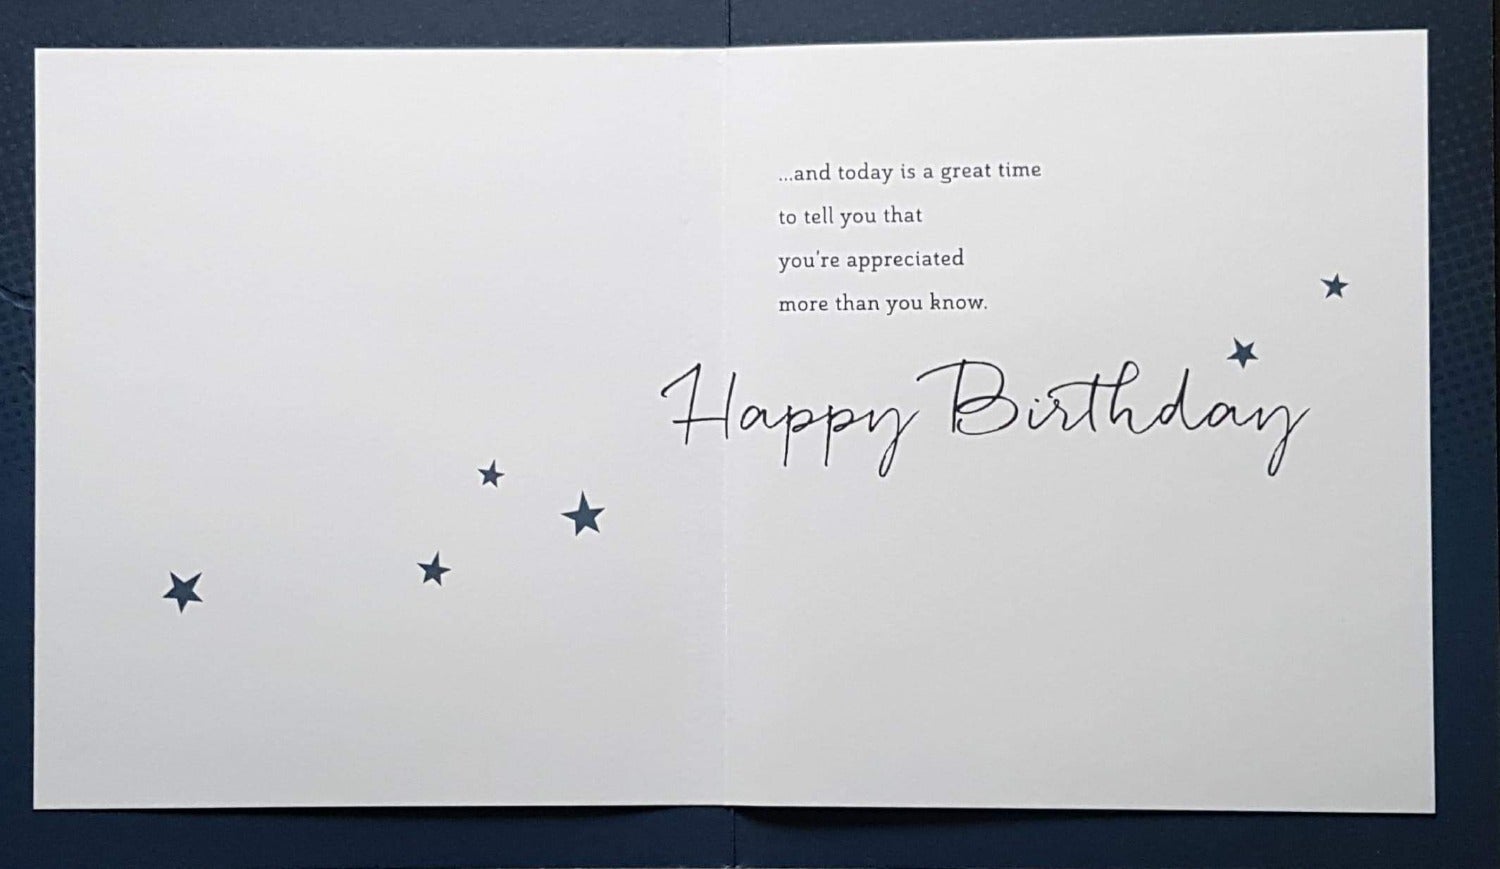 ...and today is a great time
to tell you that
you're appreciated
more than you know.
Happy Birthday